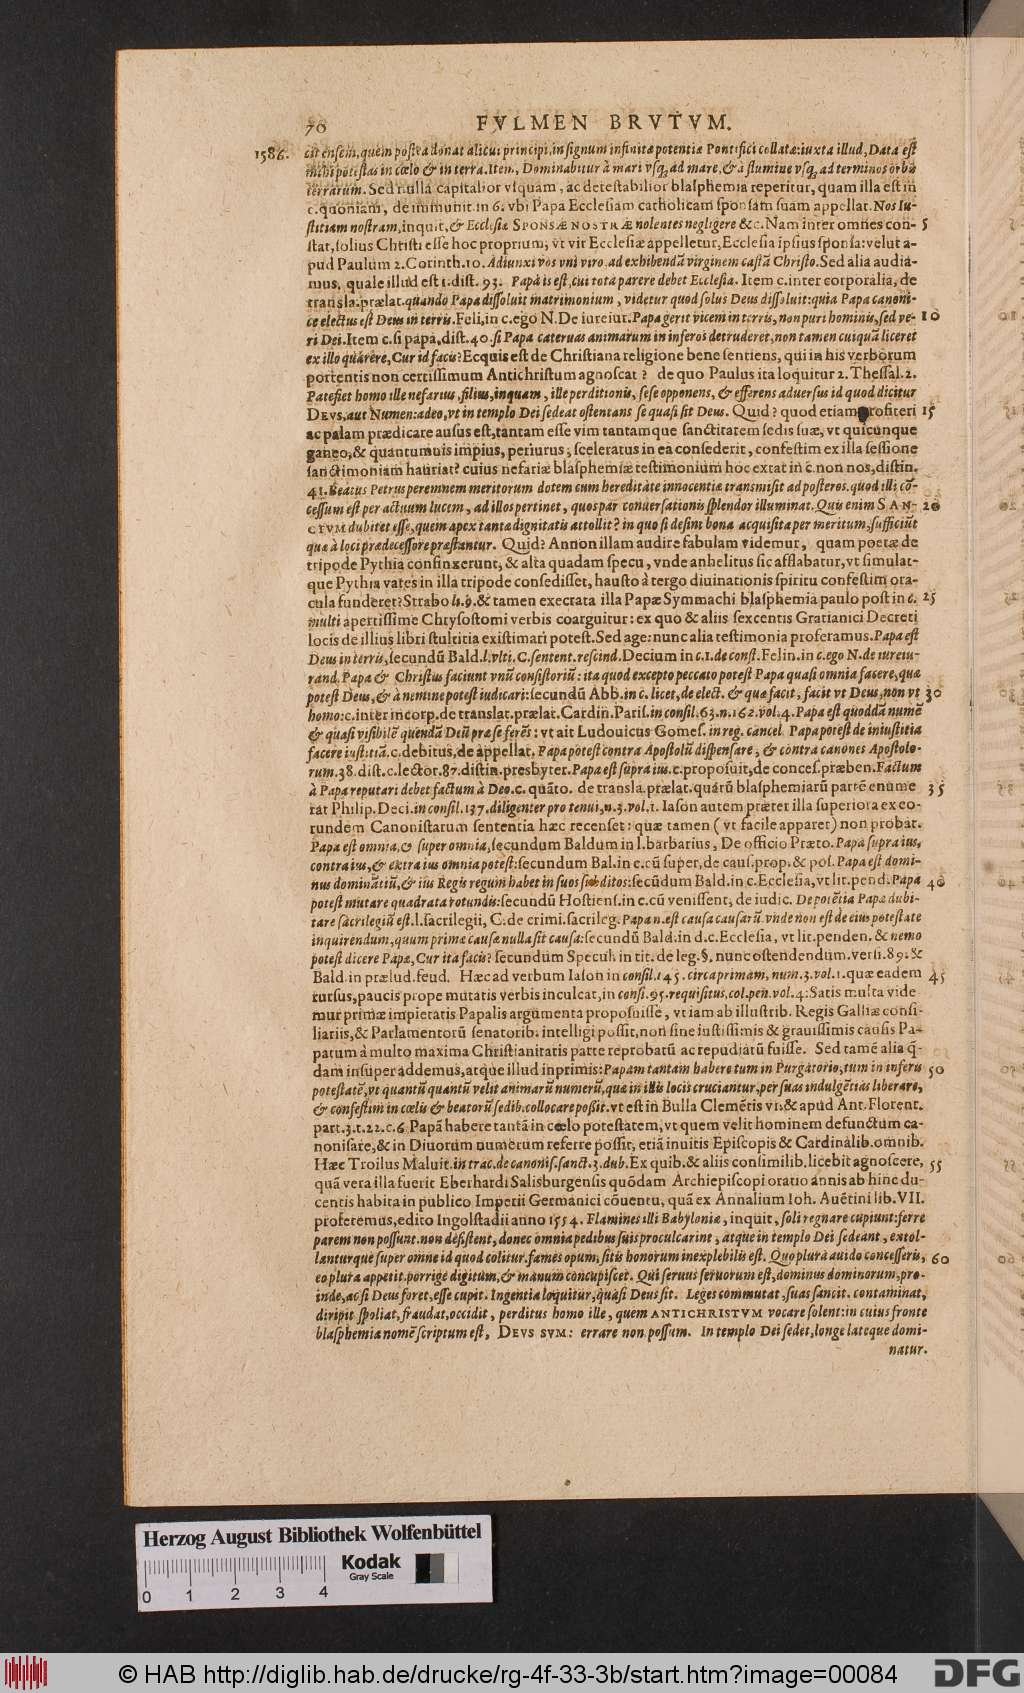 70 FVLMEN BRVTVM.
1586. cit ensem, quem postea donat alicui principi, in signum infinitæ potentiæ Pontifici collatæ: iuxta illud, Data est
mihi potestas in cœlo & in terra. Item, Dominabitur à mari vsq; ad mare, & à flumine vsq; ad terminos orbis
terrarum. Sed nulla capitalior vsquam, ac detestabilior blasphemia reperitur, quam illa est in
c. quoniam, de immunit. in 6. vbi Papa Ecclesiam catholicam sponsam suam appellat. Nos iu-
stitiam nostram, inquit, & Ecclesiæ SPONSÆ NOSTRÆ nolentes negligere &c. Nam inter omnes con- 5
stat, solius Christi esse hoc proprium, vt vir Ecclesiæ appelletur, Ecclesia ipsius sponsa: velut a-
pud Paulum 2. Corinth. 10. Adiunxi vos vni viro, ad exhibendã virginem castã Christo. Sed alia audia-
mus, quale illud est 1. dist. 93. Papa is est, cui tota parere debet Ecclesia. Item c. inter corporalia, de
transla. prælat. quando Papa dissoluit matrimonium, videtur quod solus Deus dissoluit: quia Papa canoni-
ce electus est Deus in terris. Feli, in c. ego N. De iureiur. Papa gerit vicem in terris, non puri hominis, sed ve- 10
ri Dei. Item c. si papa, dist. 40. si Papa cateruas animarum in inferos detruderet, non tamen cuiquã liceret
ex illo quærere, Cur id facis? Ecquis est de Christiana religione bene sentiens, qui in his verborum
portentis non certissimum Antichristum agnoscat? de quo Paulus ita loquitur 2. Thessal. 2.
Patefiet homo ille nefarius, filius, inquam, ille perditionis, sese opponens, & efferens aduersus id quod dicitur
DEVS, aut Numen: adeo, vt in templo Dei sedeat ostentans se quasi sit Deus. Quid? quod etiam profiteri 15
ac palam prædicare ausus est, tantam esse vim tantamque sanctitatem sedis suæ, vt quicunque
ganeo, & quantumuis impius, periurus, sceleratus in ea consederit, confestim ex illa sessione
sanctimoniam hauriat? cuius nefariæ blasphemiæ testimonium hoc extat in c. non nos, distin.
41. Beatus Petrus peremnem meritorum dotem cum hereditate innocentiæ transmisit ad posteros. quod illi cõ-
cessum est per actuum lucem, ad illos pertinet, quos par conuersationis splendor illuminat. Quis enim SAN- 20
CTVM dubitet esse, quem apex tantæ dignitatis attollit? in quo si desint bona acquisita per meritum, sufficiũt
quæ à loci prædecessore præstantur. Quid? Annon illam audire fabulam videmur, quam poetæ de
tripode Pythia confinxerunt, & alta quadam specu, vnde anhelitus sic afflabatur, vt simulat-
que Pythia vates in illa tripode consedisset, hausto à tergo diuinationis spiritu confestim ora-
cula funderet? Strabo li. 9. & tamen execrata illa Papæ Symmachi blasphemia paulo post in c. 25
multi apertissime Chrysostomi verbis coarguitur: ex quo & aliis sexcentis Gratianici Decreti
locis de illius libri stultitia existimari potest. Sed age: nunc alia testimonia proferamus. Papa est
Deus in terris, secundũ Bald. l. vlti. C. sentent. rescind. Decium in c. 1. de const. Felin. in c. ego N. de iureiu-
rand. Papa & Christus faciunt vnũ consistoriũ: ita quod excepto peccato potest Papa quasi omnia facere, quæ
potest Deus, & à nemine potest iudicari: secundũ Abb. in c. licet, de elect. & quæ facit, facit vt Deus, non vt 30
homo: c. inter incorp. de translat. prælat. Cardin. Paris. in consil. 63. n. 162. vol. 4. Papa est quoddã numẽ
& quasi visibilẽ quendã Deũ præ se ferẽs: vt ait Ludouicus Gomes. in reg. cancel. Papa potest de iniustitia
facere iustitiã. c. debitus, de appellat. Papa potest contra Apostolũ dispensare, & contra canones Apostolo-
rum. 38. dist. c. lector. 87. distin. presbyter. Papa est supra ius. c. proposuit, de conces. præben. Factum
à Papa reputari debet factum à Deo. c. quãto. de transla. prælat. quarũ blasphemiarũ partẽ enume 35
rat Philip. Deci. in consil. 137. diligenter pro tenui, n. 3. vol. 1. Iason autem præter illa superiora ex eo-
rundem Canonistarum sententia hæc recenset: quæ tamen (vt facile apparet) non probat.
Papa est omnia, & super omnia, secundum Baldum in l. barbarius, De officio Præto. Papa supra ius,
contra ius, & extra ius omnia potest: secundum Bal. in c. cũ super, de caus. prop. & pos. Papa est domi-
nus dominãtiũ, & ius Regis regum habet in suos subditos: secũdum Bald. in c. Ecclesia, vt lit. pend. Papa 40
potest mutare quadrata rotundis: secundũ Hostiens. in c. cũ venissent, de iudic. De potẽtia Papæ dubi-
tare sacrilegiũ est. l. sacrilegii, C. de crimi. sacrileg. Papa n. est causa causarũ. vnde non est de eius potestate
inquirendum, quum primæ causæ nulla sit causa: secundũ Bald. in d. c. Ecclesia, vt lit. penden. & nemo
potest dicere Papæ, Cur ita facis? secundum Specul. in tit. de leg. §. nunc ostendendum. versi. 89. &
Bald. in prælud. feud. Hæc ad verbum Iason in consil. 145. circa primam, num. 3. vol. 1. quæ eadem 45
rursus, paucis prope mutatis verbis inculcat, in consi. 95. requisitus, col. pen. vol. 4: Satis multa vide
mur primæ impietatis Papalis argumenta proposuisse, vt iam ab illustrib. Regis Galliæ consi-
liariis, & Parlamentorũ senatorib. intelligi possit, non sine iustissimis & grauissimis causis Pa-
patum à multo maxima Christianitatis parte reprobatũ ac repudiatũ fuisse. Sed tamẽ alia q̃-
dam insuper addemus, atque illud inprimis: Papam tantam habere tum in Purgatorio, tum in inferis 50
potestatẽ, vt quantũ quantũ velit animarũ numerũ, quæ in illis locis cruciantur, per suas indulgẽtias liberare,
& confestim in cœlis & beatorũ sedib. collocare possit. vt est in Bulla Clemẽtis VI. & apud Ant. Florent.
part. 3. t. 22. c. 6. Papã habere tantã in cœlo potestatem, vt quem velit hominem defunctum ca-
nonisare, & in Diuorum numerum referre possit, etiã inuitis Episcopis & Cardinalib. omnib.
Hæc Troilus Maluit. in trac. de canonis. sanct. 3. dub. Ex quib. & aliis consimilib. licebit agnoscere, 55
quã vera illa fuerit Eberhardi Salisburgensis quõdam Archiepiscopi oratio annis ab hinc du-
centis habita in publico Imperii Germanici cõuentu, quã ex Annalium Ioh. Auẽtini lib. VII.
proferemus, edito Ingolstadii anno 1554. Flamines illi Babyloniæ, inquit, soli regnare cupiunt: ferre
parem non possunt. non desistent, donec omnia pedibus suis proculcarint, atque in templo Dei sedeant, extol-
lanturque super omne id quod colitur. fames opum, sitis honorum inexplebilis est. Quo plura auido concesseris, 60
eo plura appetit. porrige digitum, & manum concupiscet. Qui seruus seruorum est, dominus dominorum, pro-
inde, ac si Deus foret, esse cupit. Ingentia loquitur, quasi Deus sit. Leges commutat, suas sancit. contaminat,
diripit, spoliat, fraudat, occidit, perditus homo ille, quem ANTICHRISTVM vocare solent: in cuius fronte
blasphemiæ nomẽ scriptum est, DEVS SVM: errare non possum. In templo Dei sedet, longe lateque domi-
natur.
Herzog August Bibliothek Wolfenbüttel
Kodak
Gray Scale
0 1 2 3 4
© HAB http://diglib.hab.de/drucke/rg-4f-33-3b/start.htm?image=00084 DFG